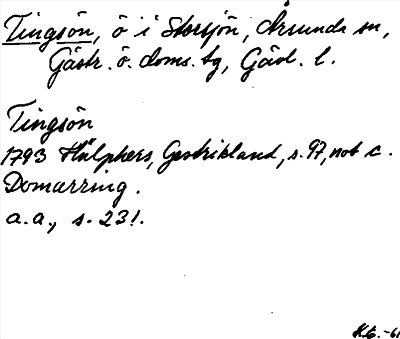 Tingsön, ö i Storsjön, Årsunda sn,
Gästr. ö. doms. tg, Gävl. l.
Tingsön
1793 Hülphers, Gestrikland, s. 97, not c.
Domarring.
a.a., s. 231.